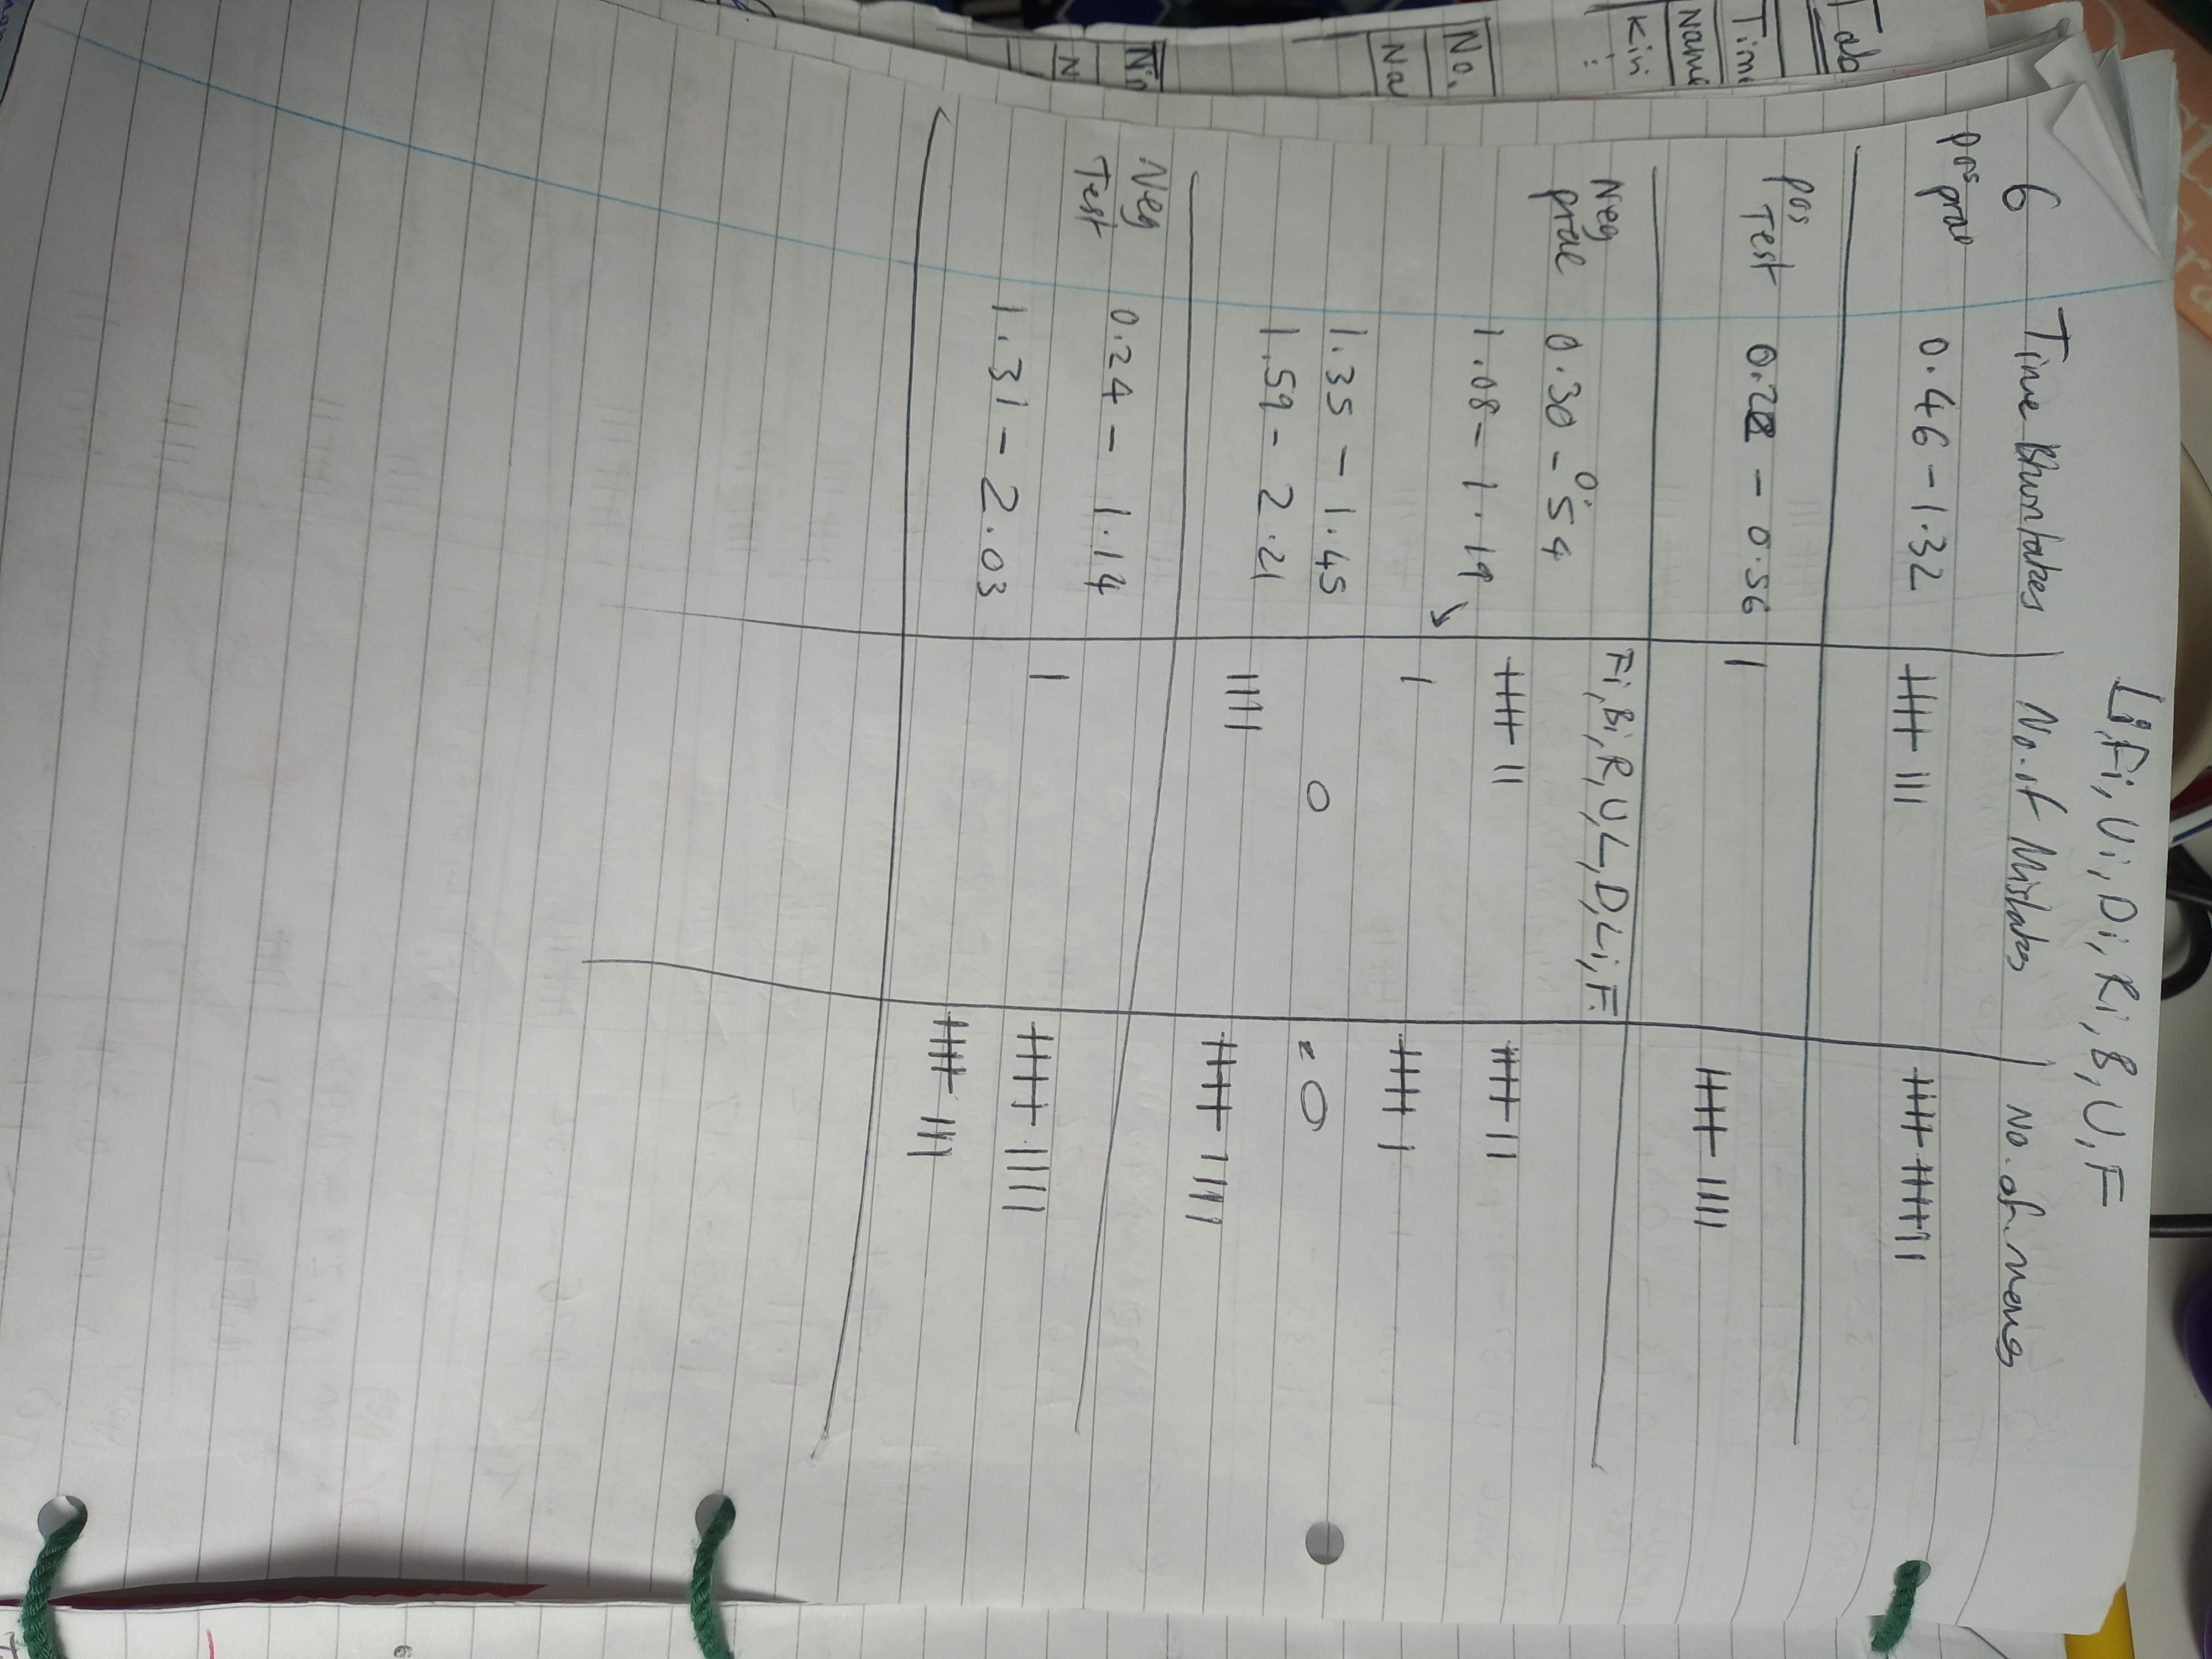 Li, Fi, Ui, Di, Ri, B, U, F
6 Time Bhuntakes | No. of Mistakes | No. of moves
Pos prac 0.46 - 1.32 | 𝍸 III | 𝍸 𝍸 II
Pos Test 0.28 - 0.56 | I | 𝍸 IIII
Neg prac 0.30 - 0.54 | Fi, Bi, R, U, L, D, Li, F.
𝍸 II | 𝍸 II
1.08 - 1.19 ↘
I | 𝍸 I
1.35 - 1.45 | 0 | = 0
1.59 - 2.21 | IIII | 𝍸 IIII
Neg Test 0.24 - 1.14
I | 𝍸 IIII
1.31 - 2.03 | 𝍸 III
Tim
Name
Kiri
No.
Na
N